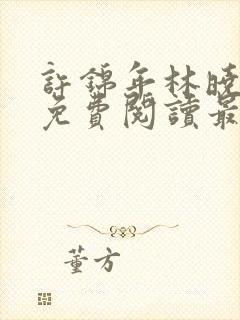 許錦年林曉
免費閱讀最
董方